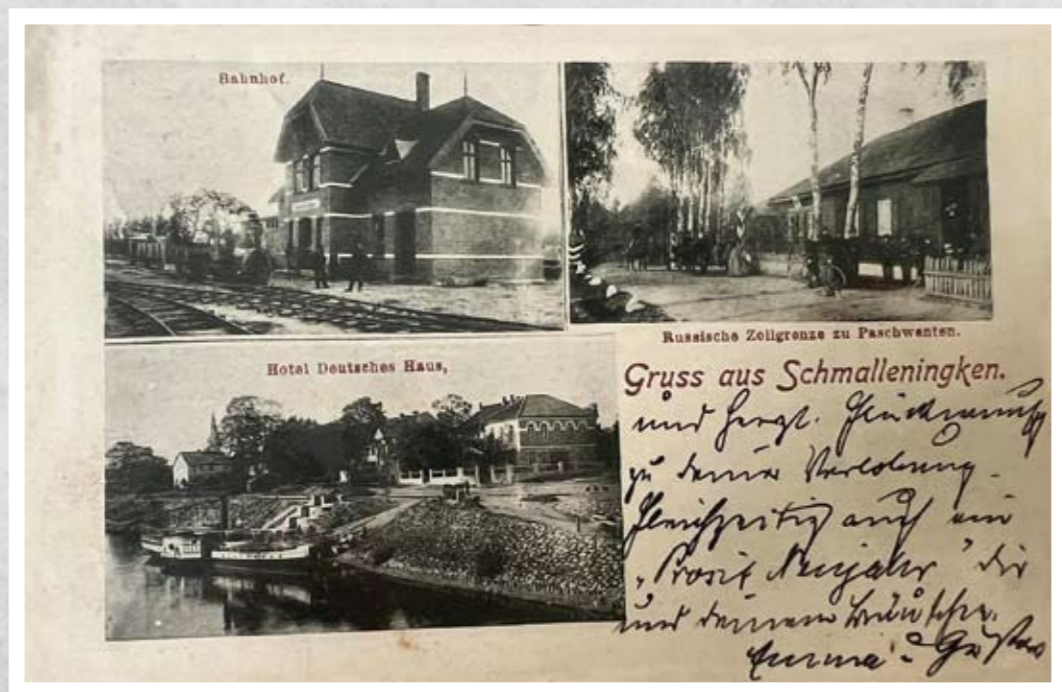 Bahnhof.
Russische Zollgrenze zu Paschwenten.
Hotel Deutsches Haus,
Gruss aus Schmalleningken.
und herzl. Glückwunsch
zu deiner Verlobung.
Gleichzeitig auch ein
„Prosit Neujahr" dir
und deinem Bräutchen.
Emma u. Gustav